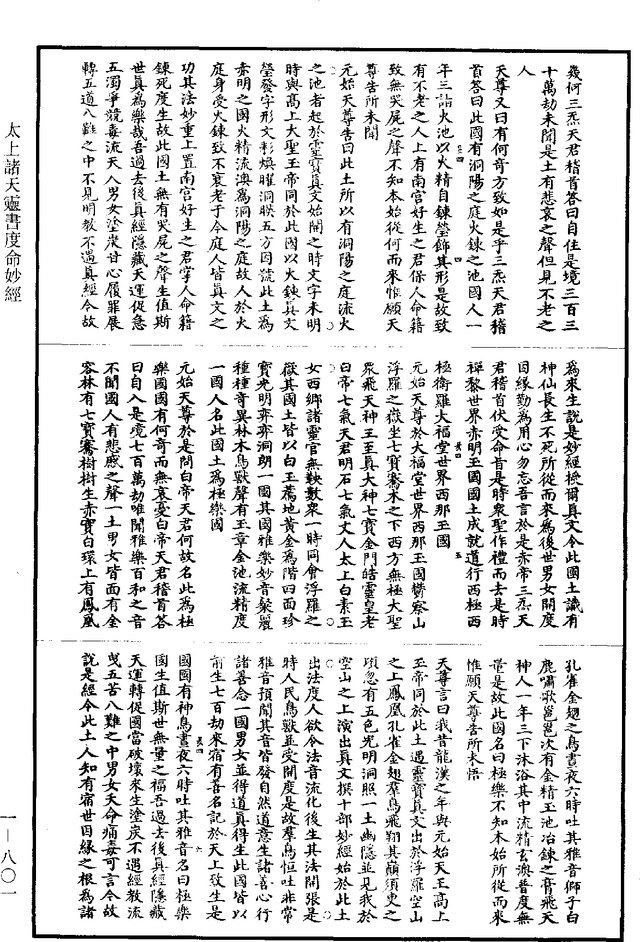 幾何三炁天君稽首答曰自住是境三百三
十萬劫未聞是土有悲哀之聲但見不老之
人
天尊又曰有何奇方致如是乎三炁天君稽
首答曰此國有洞陽之庭火鍊之池國人一
年三詣火池以火精自鍊瑩飾其形是故致
有不老之人上有南宮好生之君保人命籍
致無哭尸之聲不知本始從何而來惟願天
尊告所未聞
元始天尊告曰此土所以有洞陽之庭流火
之池者起於靈寶真文始開之時文字未明
時與高上大聖玉帝同於此國以火鍊真文
瑩發字形文彩煥曜洞暎五方因號此土為
赤明之國火精流澳為洞陽之庭故人於火
庭身受火鍊致不衰老于今庭人皆真文之
功其法妙重上置南宮好生之君掌人命籍
鍊死度生故此國土無有哭尸之聲生值斯
世真為樂哉吾過去後真經隱藏天運促急
五濁爭競毒流天人男女塗炭甘心履罪展
轉五道八難之中不見明教不遇真經今故
為來生說是妙經授爾真文令此國土識有
神仙長生不死所從而來為後世男女開度
因緣勤為用心勿忘吾言於是赤帝三炁天
君稽首伏受命旨是時衆聖作禮而去是時
禪黎世界赤明玉國國土成就道行西極西
極衛羅大福堂世界西那玉國
元始天尊於大福堂世界西那玉國鬱察山
浮羅之嶽坐七寶騫木之下西方無極大聖
衆飛天神王至真大神七寶金門皓靈皇老
白帝七氣天君明石七氣丈人太上白素玉
女西鄉諸靈官無鞅數衆一時同會浮羅之
嶽其國土皆以白玉薦地黃金為階四面珍
寶光明弈弈洞朗一國其國雅樂妙音粲麗
種種奇異林木鳥獸聲有玉章金池流精度
一國人名此國土為極樂國
元始天尊於是問白帝天君何故名此為極
樂國國有何奇而無哀憂白帝天君稽首答
曰自入是境七百萬劫唯聞雅樂百和之音
不聞國人有悲慼之聲一土男女皆面有金
容林有七寶騫樹樹生赤寶白環上有鳳凰
孔雀金翅之鳥晝夜六時吐其雅音獅子白
鹿嘯歌邕邕次有金精玉池冶鍊之膏飛天
神人一年三下沐浴其中流精玄澳普度無
常是故此國名曰極樂不知本始所從而來
惟願天尊告所未悟
天尊言曰我昔龍漢之年與元始天王高上
玉帝同於此土遇靈寶真文出於浮羅空山
之上鳳凰孔雀金翅羣鳥飛翔其巔須臾之
頃忽有五色光明洞照一土幽隱並見我於
空山之上演出真文撰十部妙經始於此土
出法度人欲令法音流化後生其法開張是
時人民鳥獸並受開度是故羣鳥恒吐非常
雅音預聞其音皆發自然道意生諸善心行
諸善念一國男女並得道真得生此國皆以
前生七百劫來宿有善名記於天上致生是
國國有神鳥晝夜六時吐其雅音名曰極樂
國生值斯世無量之福吾過去後真經隱藏
天運轉促國當破壞來生塗炭不遇經教流
曳五苦八難之中男女夭命痛毒可言今故
說是經令此土人知有宿世因緣之根為諸
太上諸天靈書度命妙經
一—八〇一